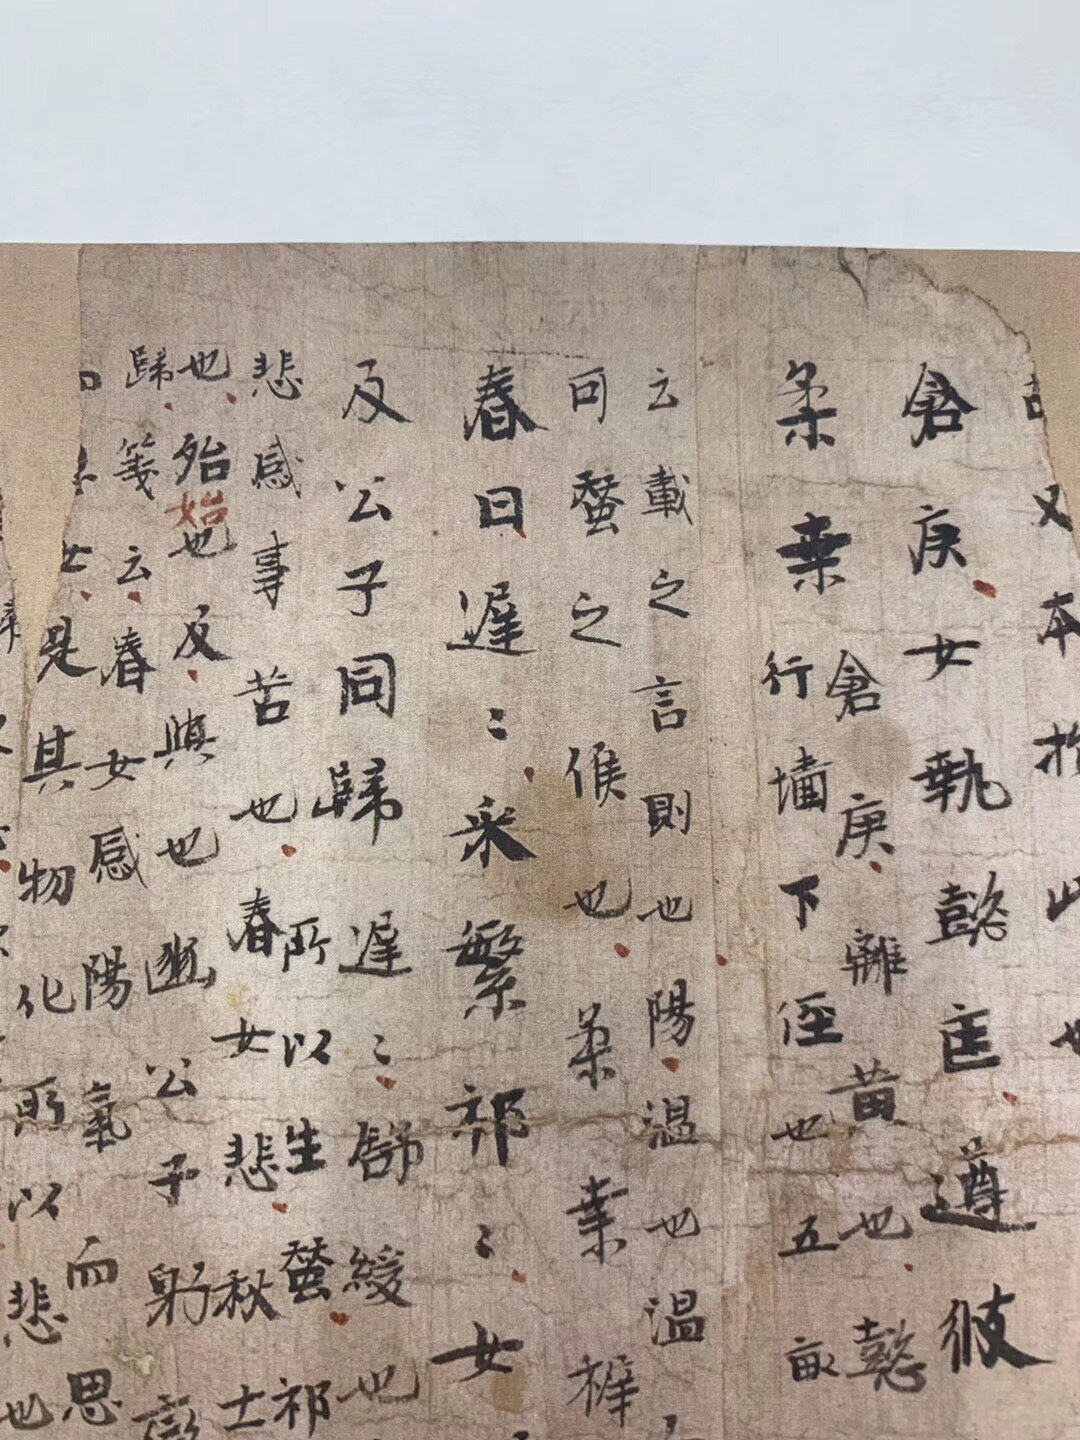 又本於此也
倉庚女執懿匡遵彼
倉庚離黄也懿
柔桒行墻下径也五畝
云載之言則也陽温也温
可蚕之候也柔桒稚
春日遅〻采繁祁〻女
及公子同歸遅〻舒緩也
所以生蚕祁
悲感事苦也春女悲秋士
也殆始也及與也豳公子躬
歸箋云春女感陽氣而思
是其物化所以悲也